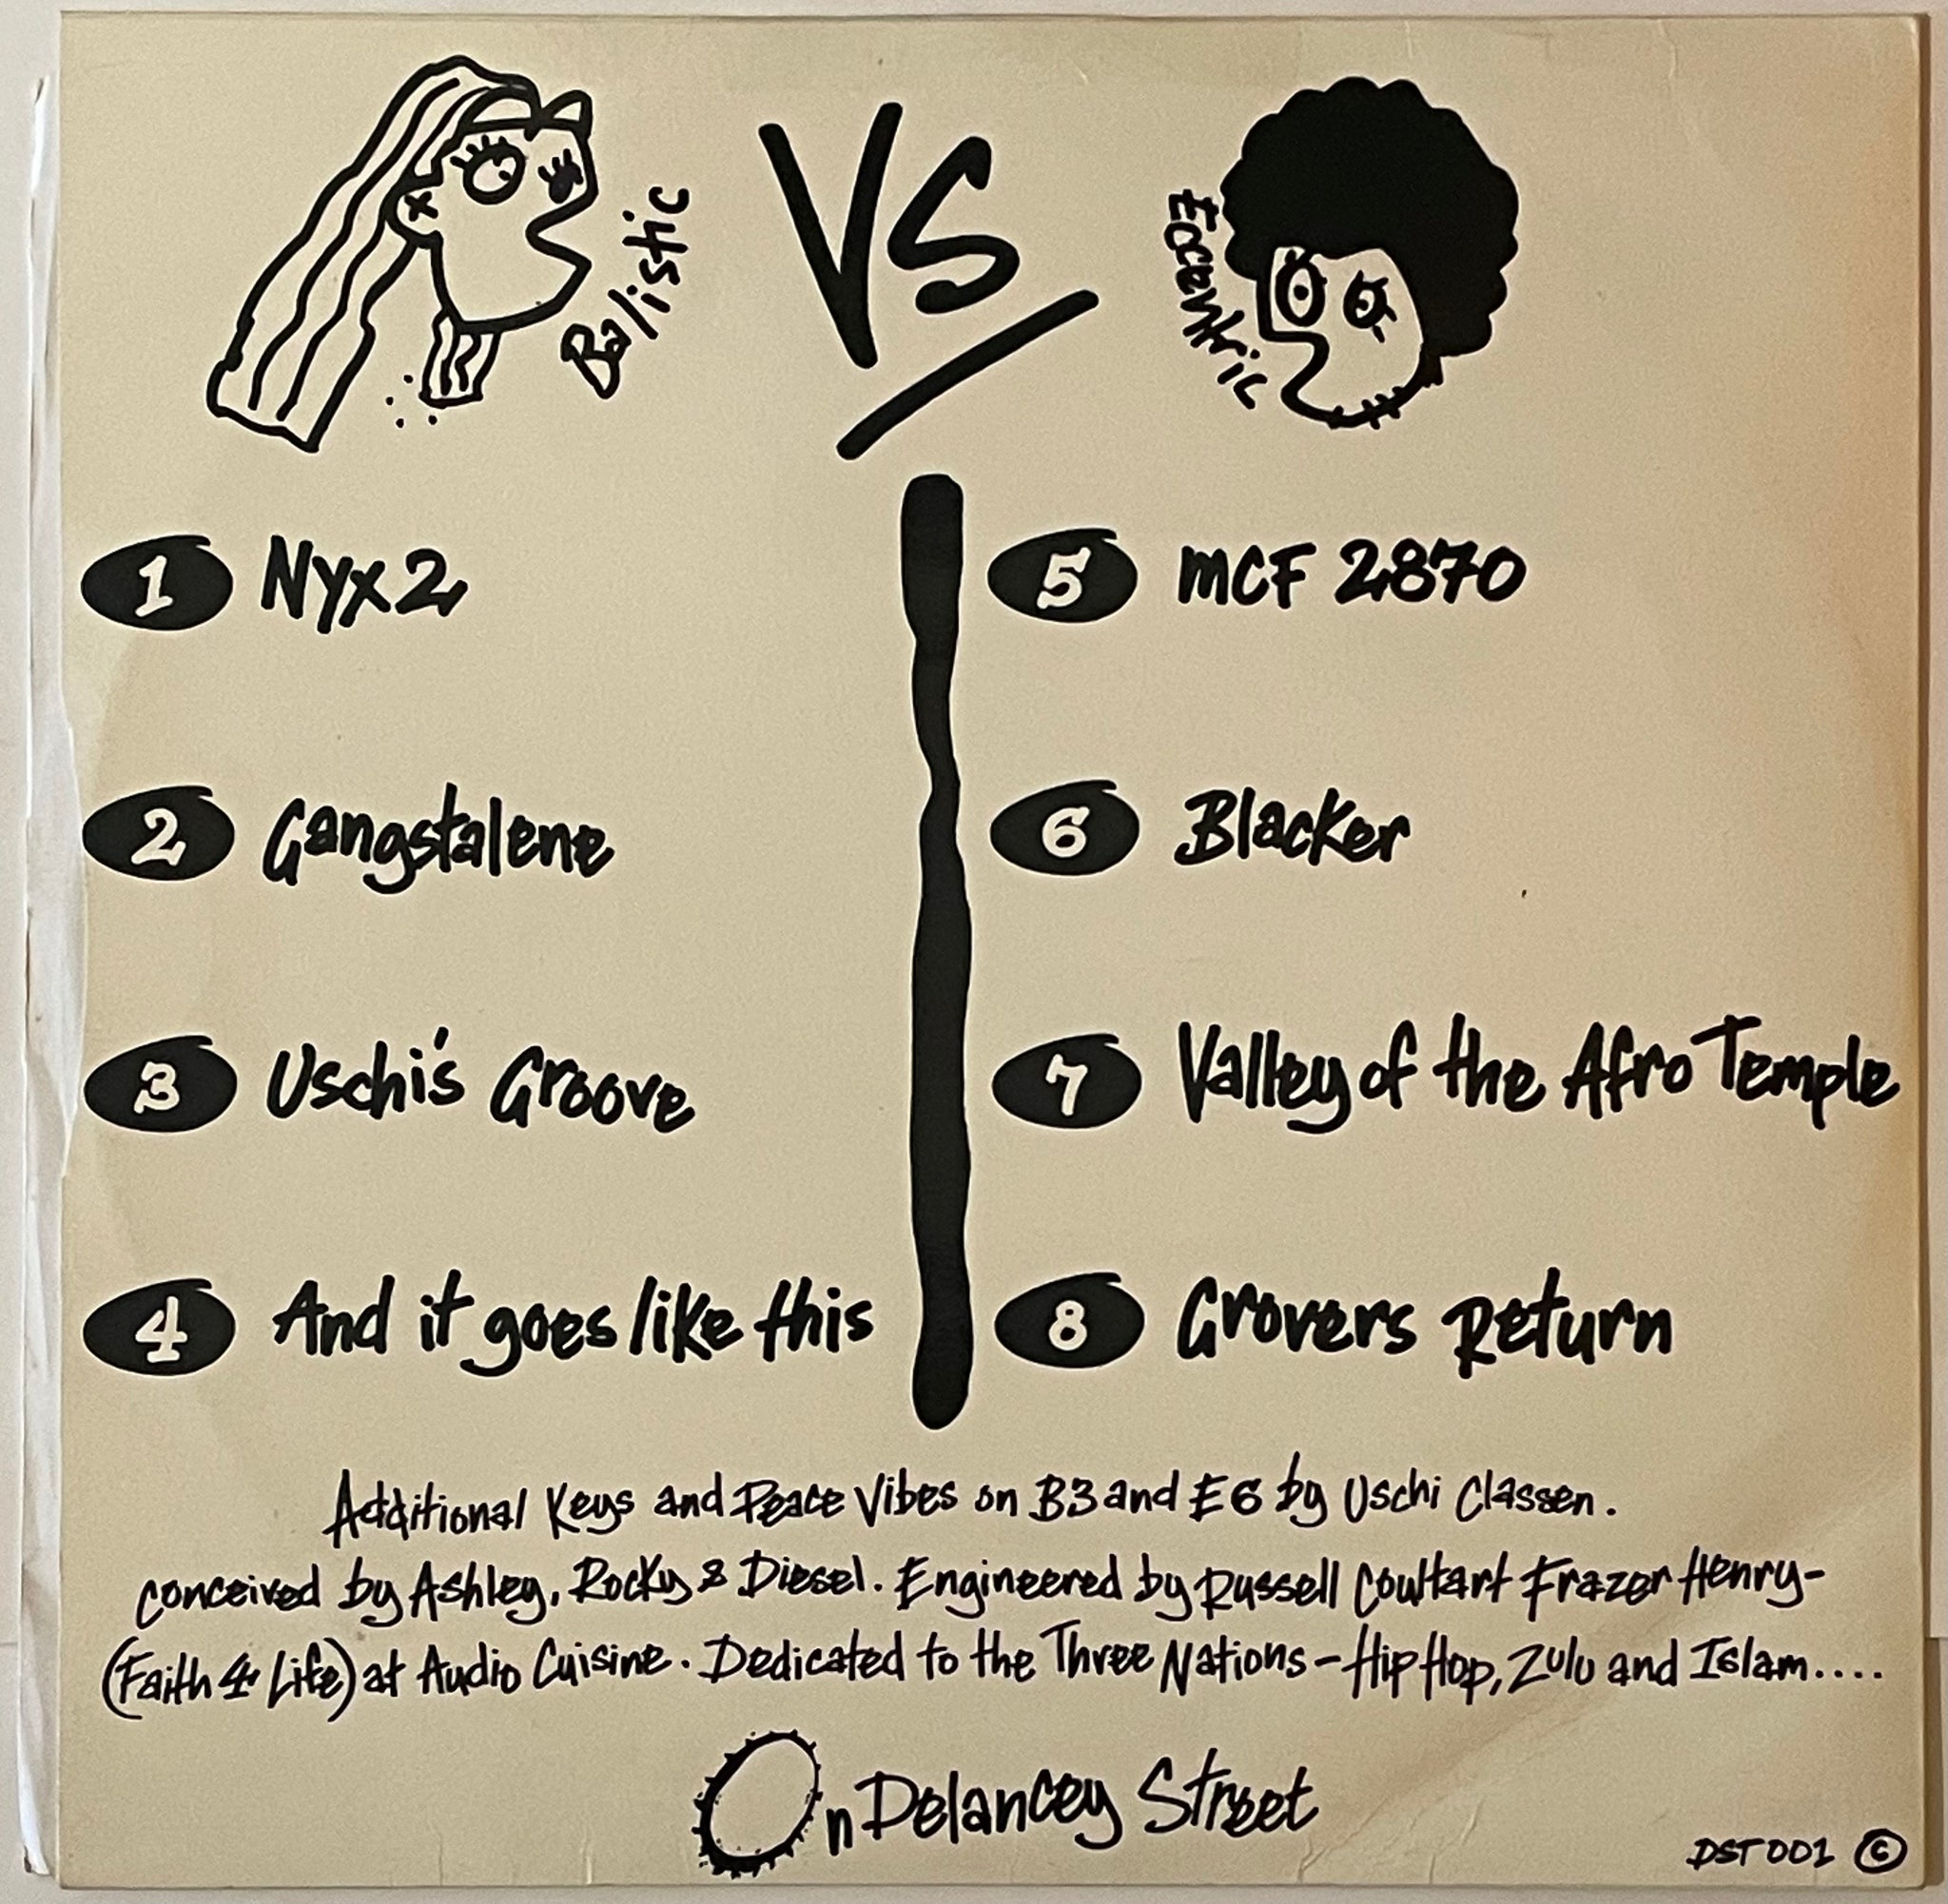 Balistic
VS
Eccentric
1 Nyx2
2 Gangstalene
3 Uschi's Groove
4 And it goes like this
5 MCF 2870
6 Blacker
7 Valley of the Afro Temple
8 Grovers Return
Additional Keys and Peace Vibes on B3 and E6 by Uschi Classen.
conceived by Ashley, Rocky & Diesel. Engineered by Russell Coultart Frazer Henry-
(Faith 4 Life) at Audio Cuisine. Dedicated to the Three Nations - Hip Hop, Zulu and Islam....
On Delancey Street
DST 001 ©